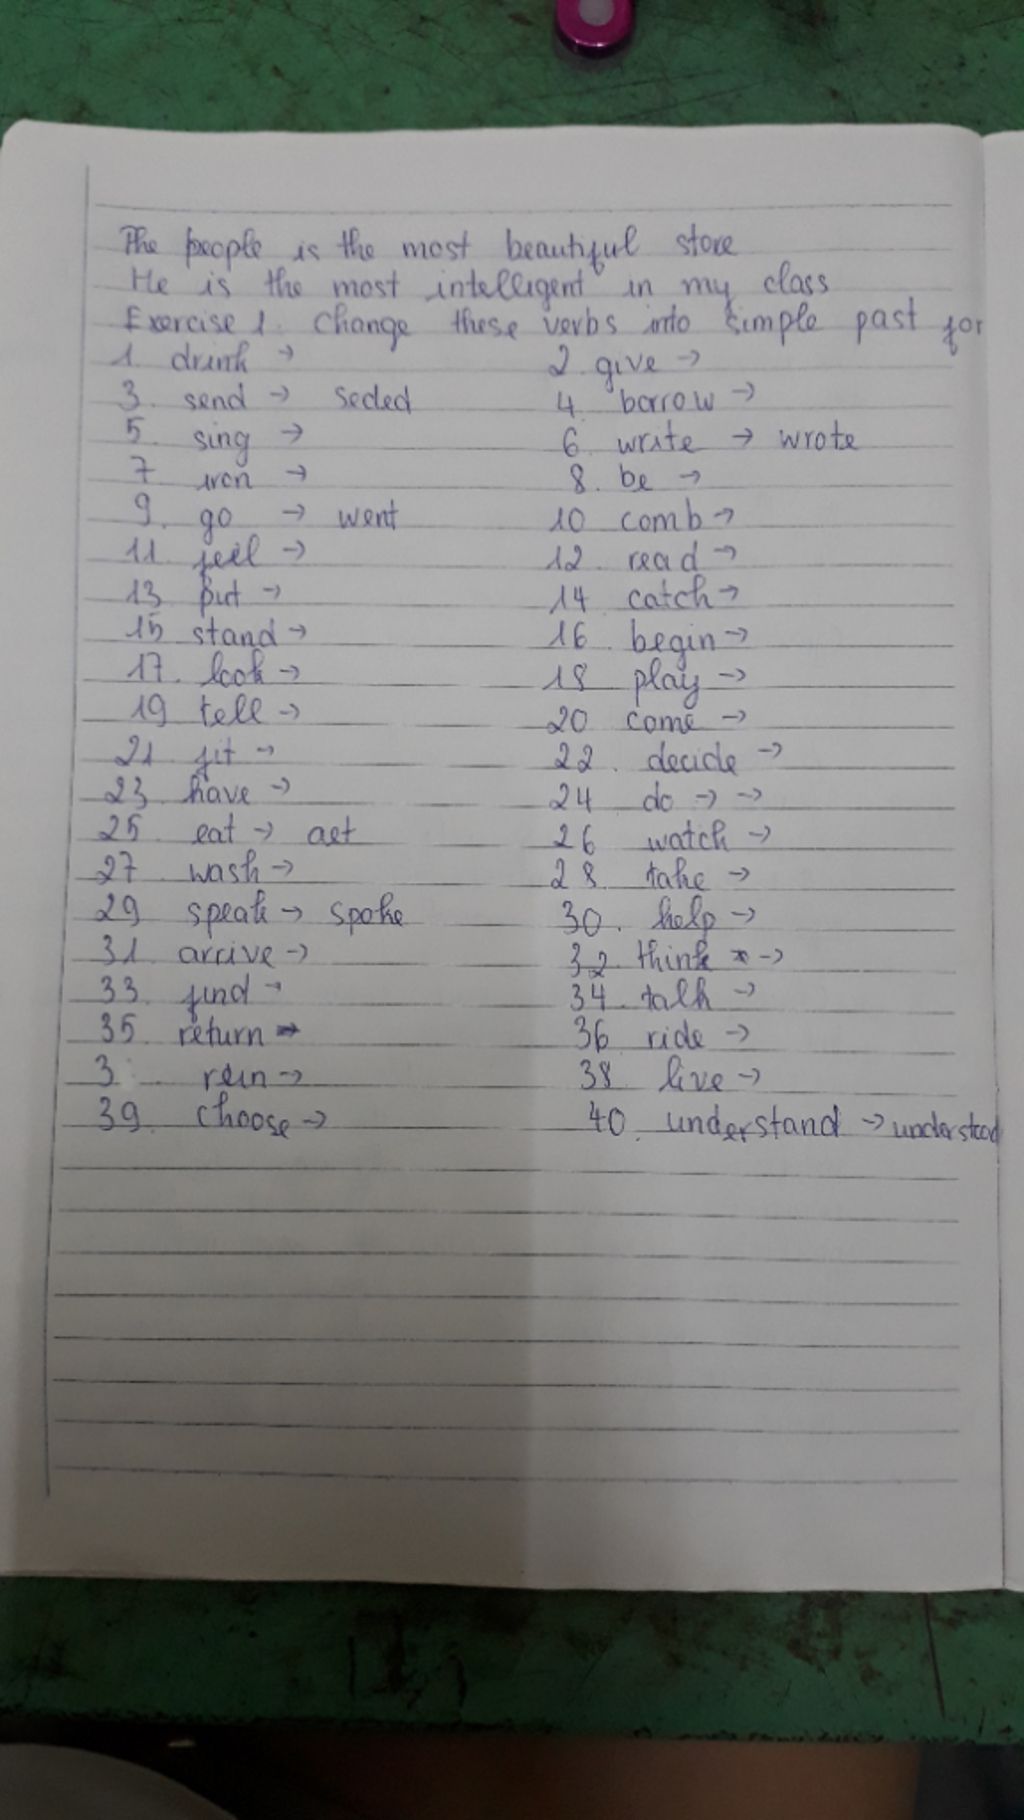 The people is the most beautiful store
He is the most intelligent in my class
Exercise 1. Change these verbs into simple past for
1. drink → 2. give →
3. send → seded 4. borrow →
5. sing → 6. write → wrote
7. iron → 8. be →
9. go → went 10 comb →
11. feel → 12. read →
13. put → 14 catch →
15 stand → 16. begin →
17. look → 18 play →
19 tell → 20 come →
21. fit → 22. decide →
23. have → 24 do → →
25 eat → aet 26 watch →
27 wash → 28 take →
29 speak → spoke 30. help →
31. arrive → 32. think →
33. find → 34. talk →
35 return → 36 ride →
3 → 38 live →
39. choose → 40. understand → understood